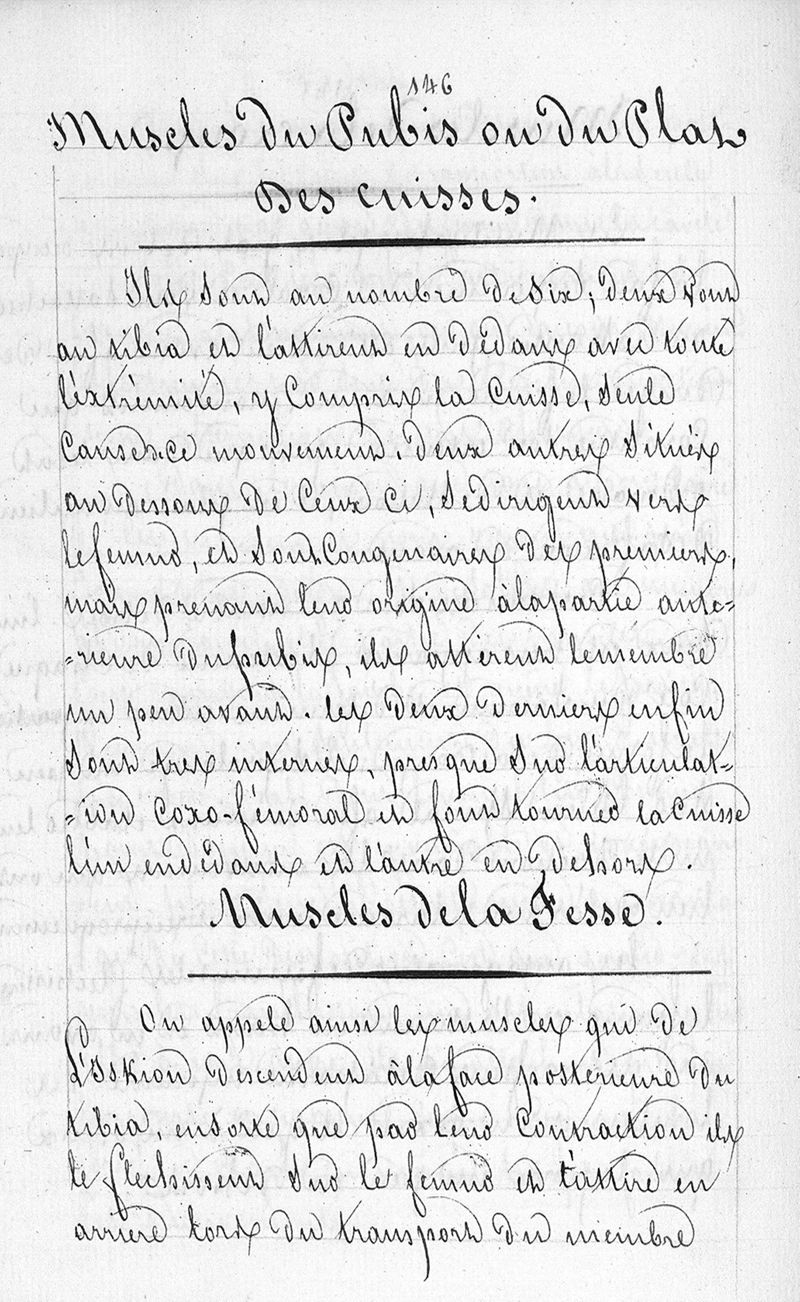 146
Muscles du Pubis ou du Plat
Des cuisses.
Ils sont au nombre de six; deux vont
au tibia et l'attirent en dedans avec toute
l'éxtrèmité, y Compris la Cuisse, seule
Cause-ce mouvement. deux autres Situés
au dessous de Ceux ci, se dirigent vers
le femur, et sont Congenaires des premiers,
mais prenant leur origine à la partie anté-
-rieure du pubis, ils atterent le membre
un peu avant. les deux derniers enfin
sont tres internes, presque sur l'articulat-
-ion coxo-fémoral et font tourner la Cuisse
l'un en dédans et l'autre en dehors.
Muscles de la Fesse.
On appele ainsi les muscles qui de
L'Iskion descendent à la face posterieure du
tibia, ensorte que par leur Contraction ils
le flechissent sur le femur et l'attire en
arriere lors du transport du membre